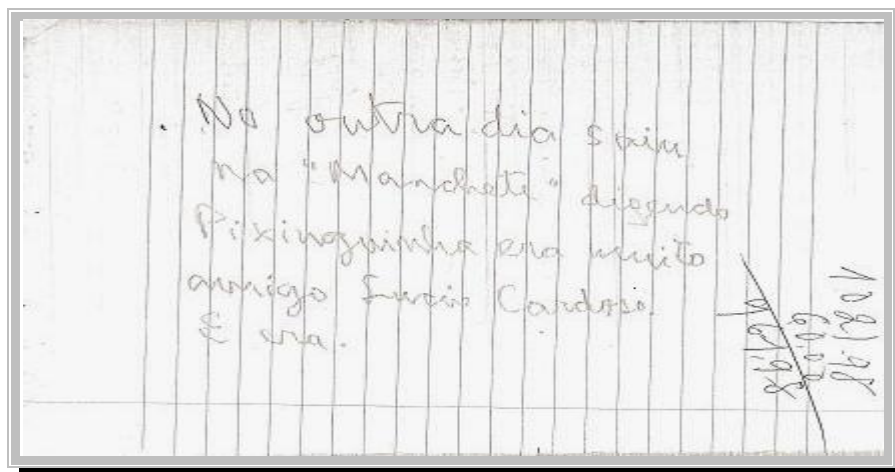 No outra dia saiu
na "Manchete" dizendo
Pixinguinha era muito
amigo Lucio Cardoso.
E era.